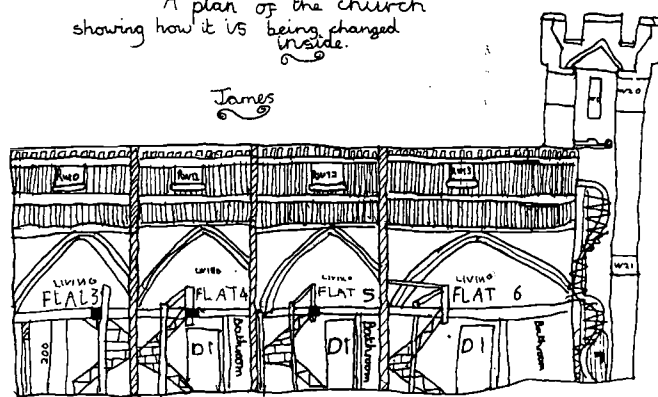 A plan of the church
showing how it is being changed
inside.
James
W20
W21
LIVING
FLAT 3
LIVING
FLAT 4
LIVING
FLAT 5
LIVING
FLAT 6
200
D1
Bathroom
D1
Bathroom
D1
Bathroom